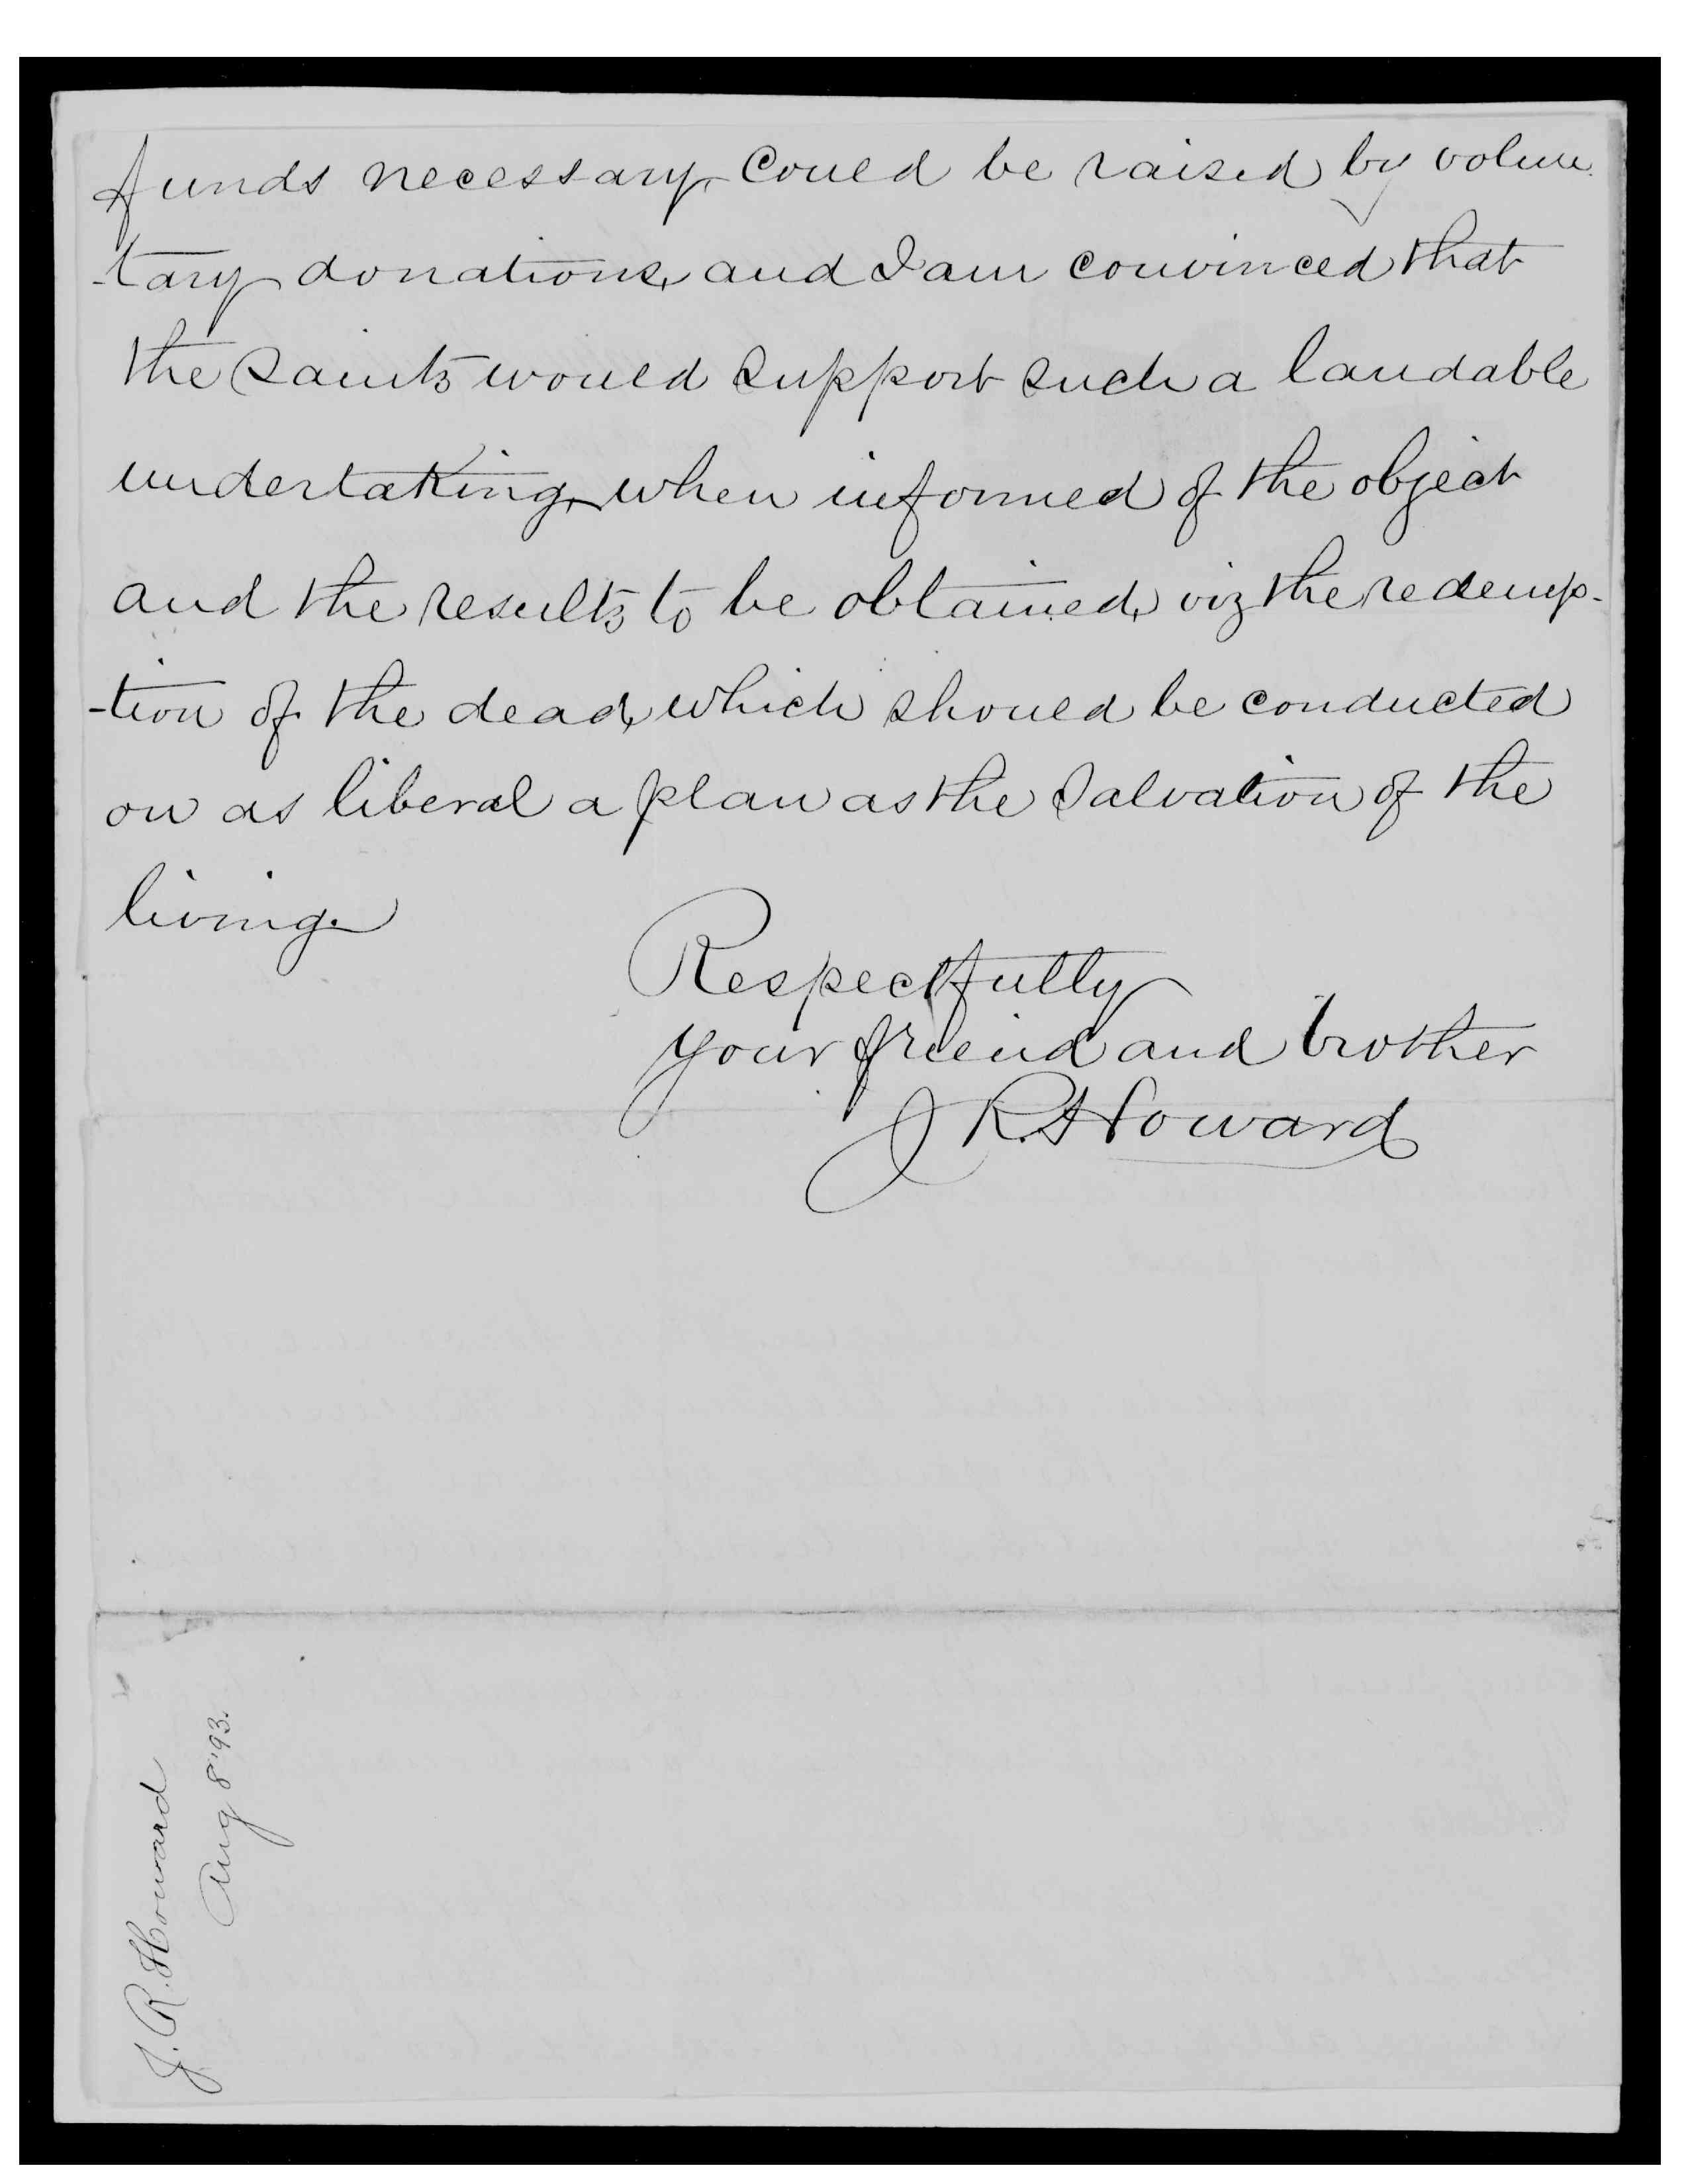 funds necessary, could be raised by volun
-tary donations, and I am convinced that
the saints would support such a laudable
undertaking, when informed of the object
and the results to be obtained, viz the redemp-
-tion of the dead, which should be conducted
on as liberal a plan as the salvation of the
living.
Respectfully
your friend and brother
J R. Howard
J. R. Howard
Aug 8 '93.